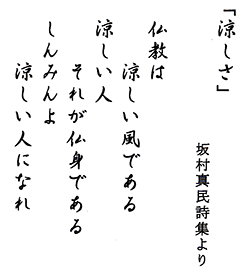 「涼しさ」
坂村真民詩集より
仏教は
涼しい風である
涼しい人
それが仏身である
しんみんよ
涼しい人になれ